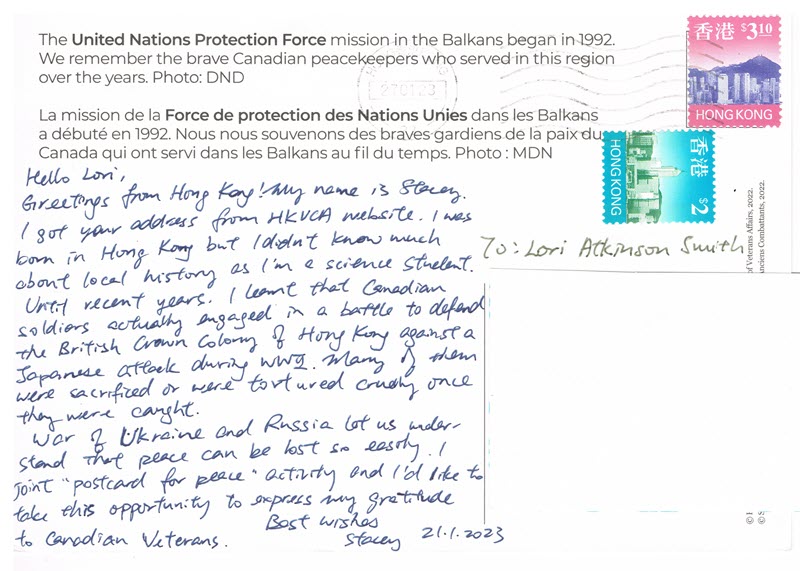 The United Nations Protection Force mission in the Balkans began in 1992.
We remember the brave Canadian peacekeepers who served in this region
over the years. Photo: DND
La mission de la Force de protection des Nations Unies dans les Balkans
a débuté en 1992. Nous nous souvenons des braves gardiens de la paix du
Canada qui ont servi dans les Balkans au fil du temps. Photo : MDN
香港 $3.10
HONG KONG
香港 $2
HONG KONG
Hello Lori,
Greetings from Hong Kong! My name is Stacey.
I got your address from HKVCA website. I was
born in Hong Kong but I didn't know much
about local history as I'm a science student.
Until recent years. I learnt that Canadian
soldiers actually engaged in a battle to defend
the British Crown Colony of Hong Kong against a
Japanese attack during WWII. Many of them
were sacrificed or were tortured cruelly once
they were caught.
War of Ukraine and Russia let us under-
stand that peace can be lost so easily. I
joint "postcard for peace" activity and I'd like to
take this opportunity to express my gratitude
to Canadian Veterans.
Best wishes
Stacey 21.1.2023
To: Lori Atkinson Smith
of Veterans Affairs, 2022.
Anciens Combattants, 2022.